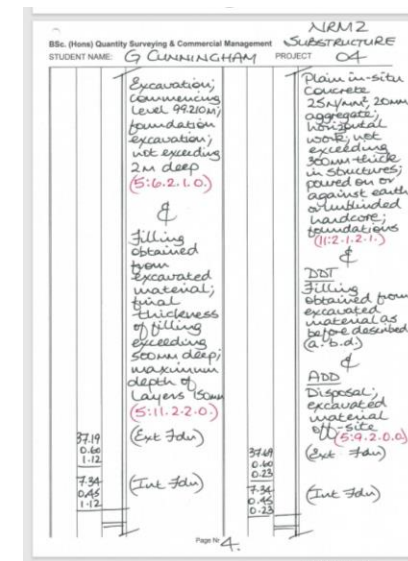 NRM2
BSc. (Hons) Quantity Surveying & Commercial Management SUBSTRUCTURE
STUDENT NAME: G CUNNINGHAM PROJECT 04
Excavation;
commencing
level 99.210m;
foundation
excavation;
not exceeding
2m deep
(5:6.2.1.0.)
&
Filling
obtained
from
excavated
material;
final
thickness
of filling
exceeding
500mm deep;
maximum
depth of
Layers 150mm
(5:11.2.2.0.)
37.19
0.60
1.12
(Ext Fdn)
7.34
0.45
1.12
(Int Fdn)
Plain in-situ
Concrete
25N/mm², 20mm
aggregate;
horizontal
work, not
exceeding
300mm thick
in structures;
poured on or
against earth
or unblinded
hardcore;
foundations
(11:2.1.2.1.)
&
DDT
Filling
obtained from
excavated
material as
before described
(a.b.d.)
&
ADD
Disposal;
excavated
material
off-site
(5:9.2.0.0)
0.60
0.23
(Ext Fdn)
7.34
0.45
0.23
(Int Fdn)
Page Nr 4.